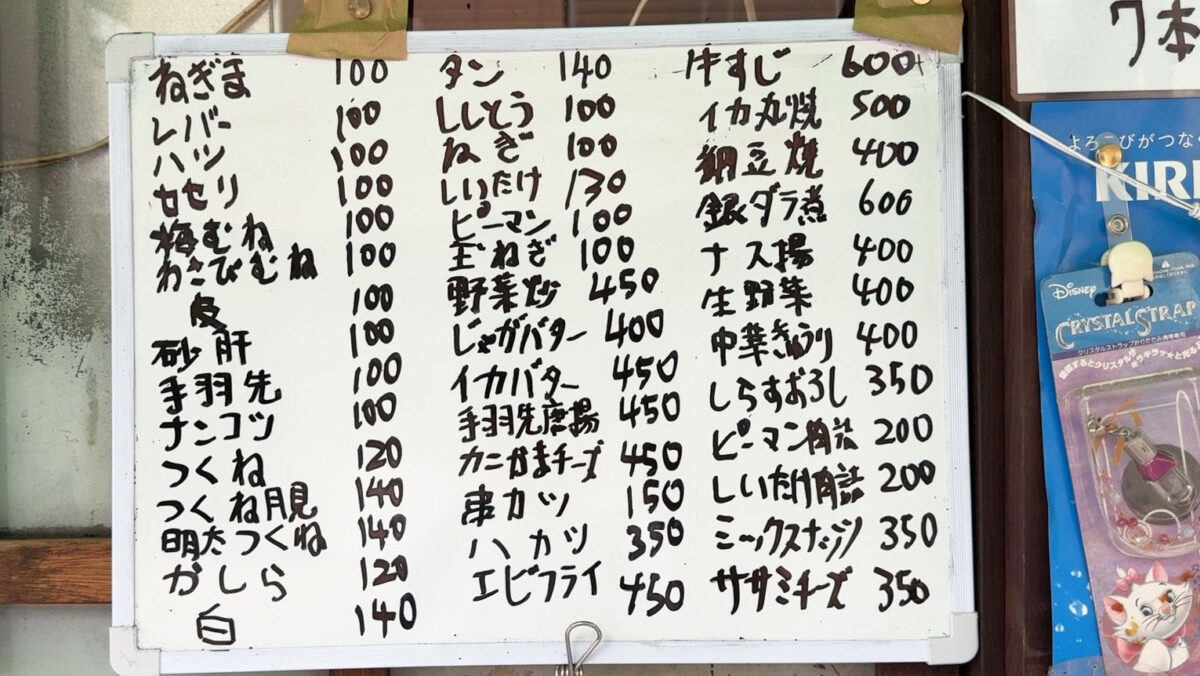 ねぎま 100
レバー 100
ハツ 100
セセリ 100
梅むね 100
わさびむね 100
皮 100
砂肝 100
手羽先 100
ナンコツ 100
つくね 120
つくね月見 140
明たつくね 140
がしら 120
白 140
タン 140
ししとう 100
ねぎ 100
しいたけ 130
ピーマン 100
玉ねぎ 100
野菜炒 450
じゃがバター 400
イカバター 450
手羽先唐揚 450
カニかまチーズ 450
串カツ 150
ハカツ 350
エビフライ 450
牛すじ 600
イカ丸焼 500
納豆焼 400
銀ダラ煮 600
ナス揚 400
生野菜 400
中華きゅうり 400
しらすおろし 350
ピーマン肉詰 200
しいたけ肉詰 200
ミックスナッツ 350
ササミチーズ 350
7本
よろこびがつな
KIRI
Disney
CRYSTAL STRAP